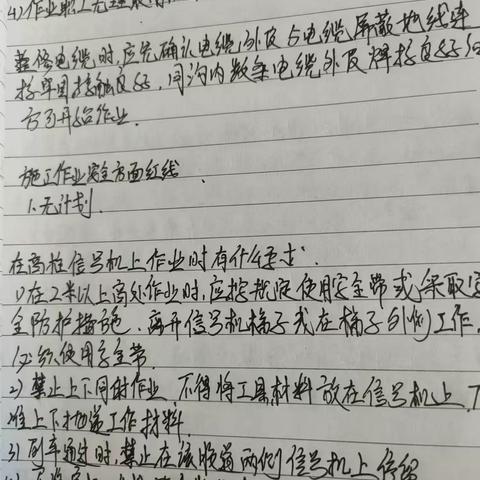 4)作业职工无
整修电缆时,应先确认电缆外皮与电缆屏蔽地线连
接牢固接触良好,同沟内数条电缆外皮焊接良好后
方可开始作业.
施工作业安全方面红线
1.无计划.
在高柱信号机上作业时有什么要求.
1)在2米以上高处作业时,应按规定使用安全带或采取安
全防护措施.离开信号机梯子或在梯子外侧工作,
必须使用安全带.
2)禁止上下同时作业 不得将工具材料放在信号机上.不
准上下抛递工作材料
3)列车通过时,禁止在该股道两侧信号机上停留